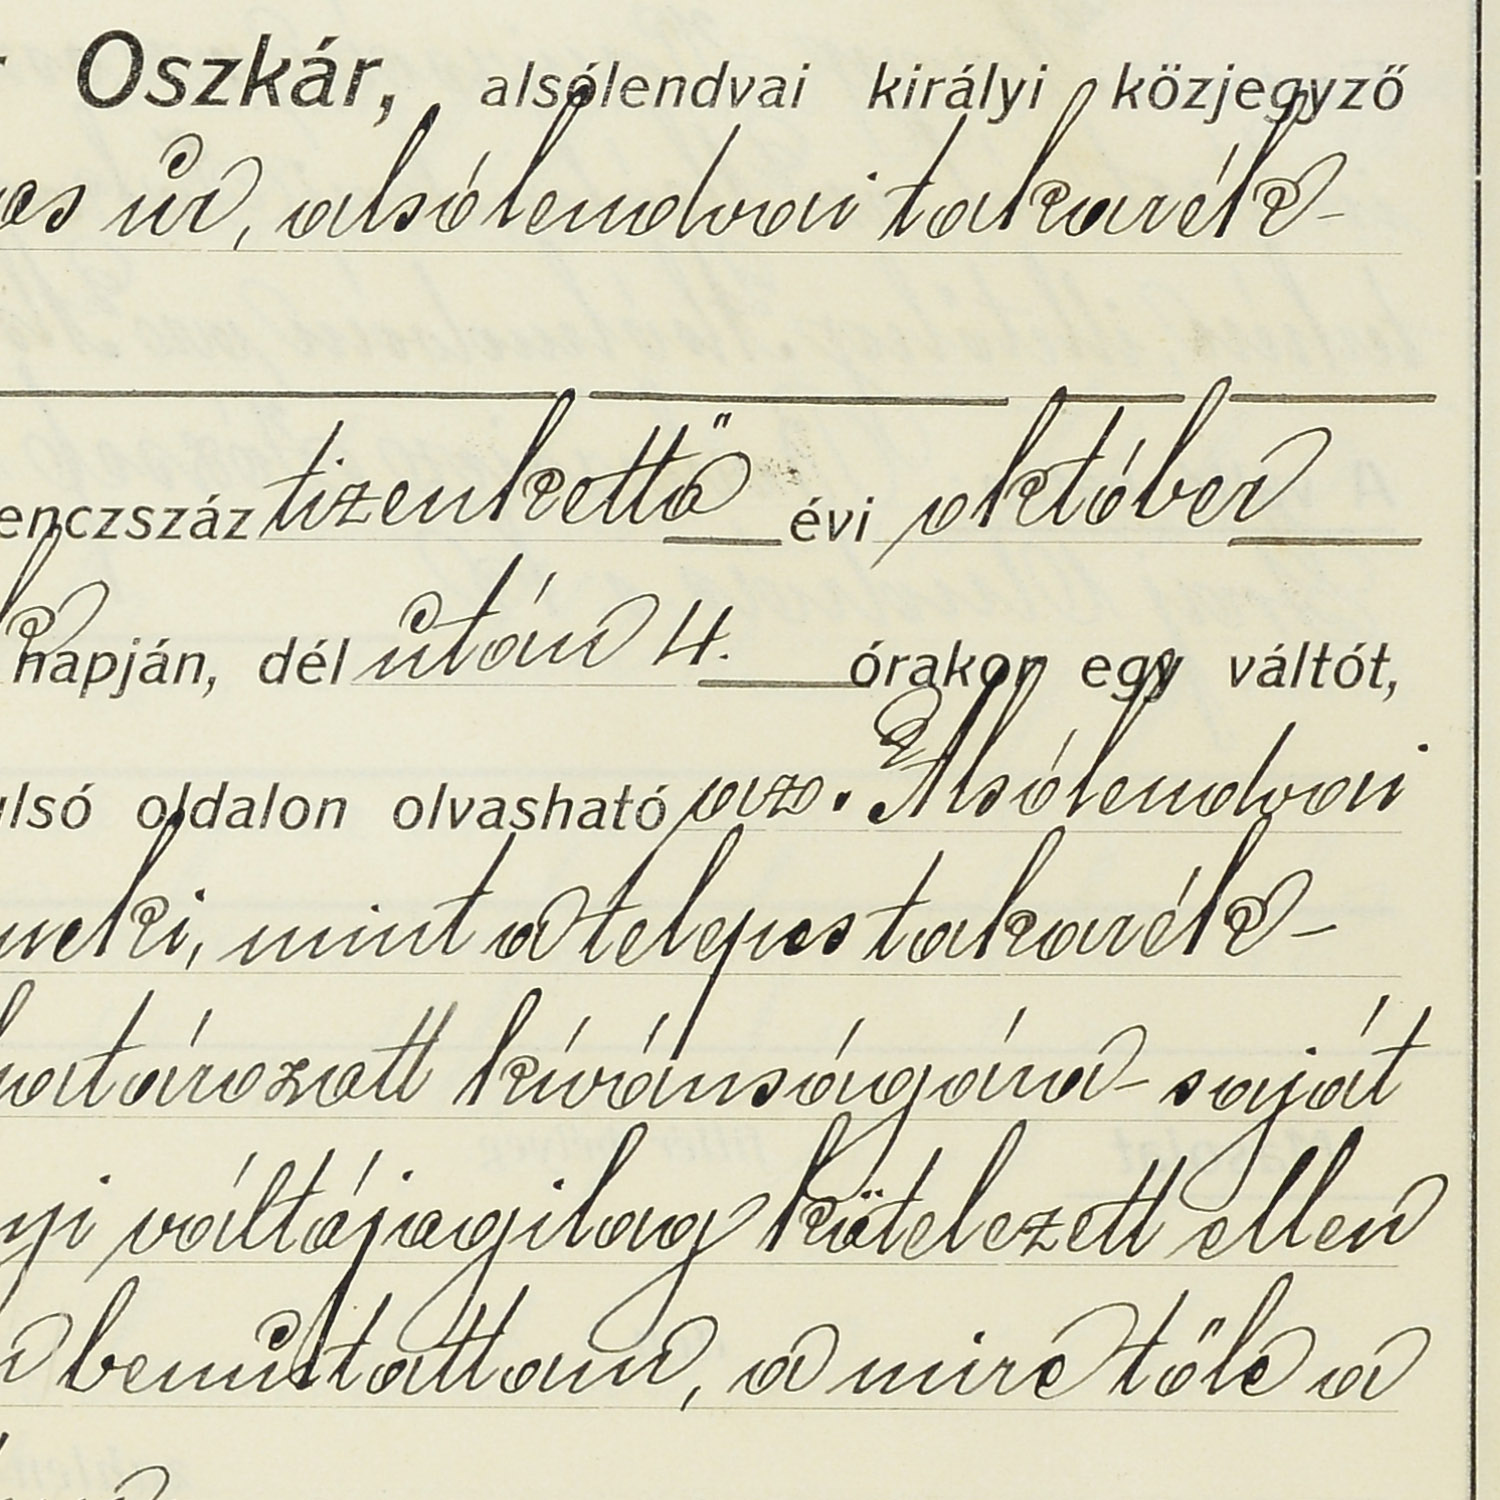 Oszkár, alsólendvai királyi közjegyző
úr, alsólendvai takarék-
enczszáz tizenkettő évi október
napján, dél után 4. órakor egy váltót,
ulsó oldalon olvasható az. Alsólendvai
neki, mint a telepes takarék-
határozott kívánságára - saját
nyi váltójogilag kötelezett ellen
bemutattam, a mire tőle a